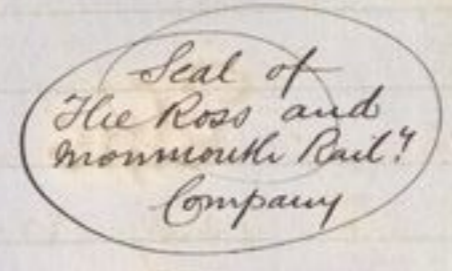 Seal of
The Ross and
Monmouth Rail.y
Company